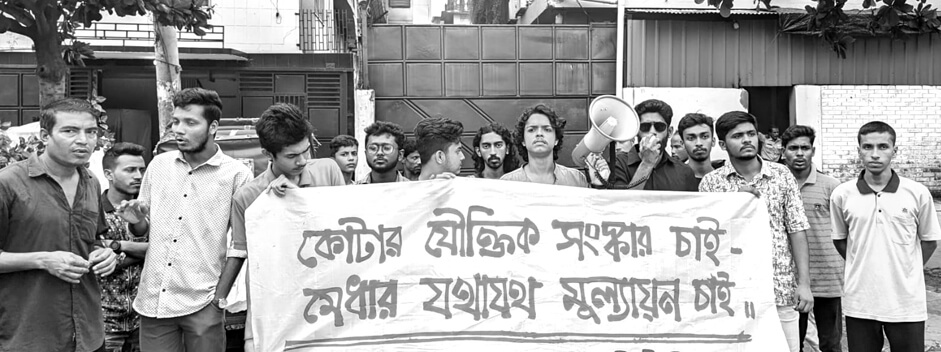 কোটার যৌক্তিক সংস্কার চাই -
মেধার যথাযথ মূল্যায়ন চাই ॥